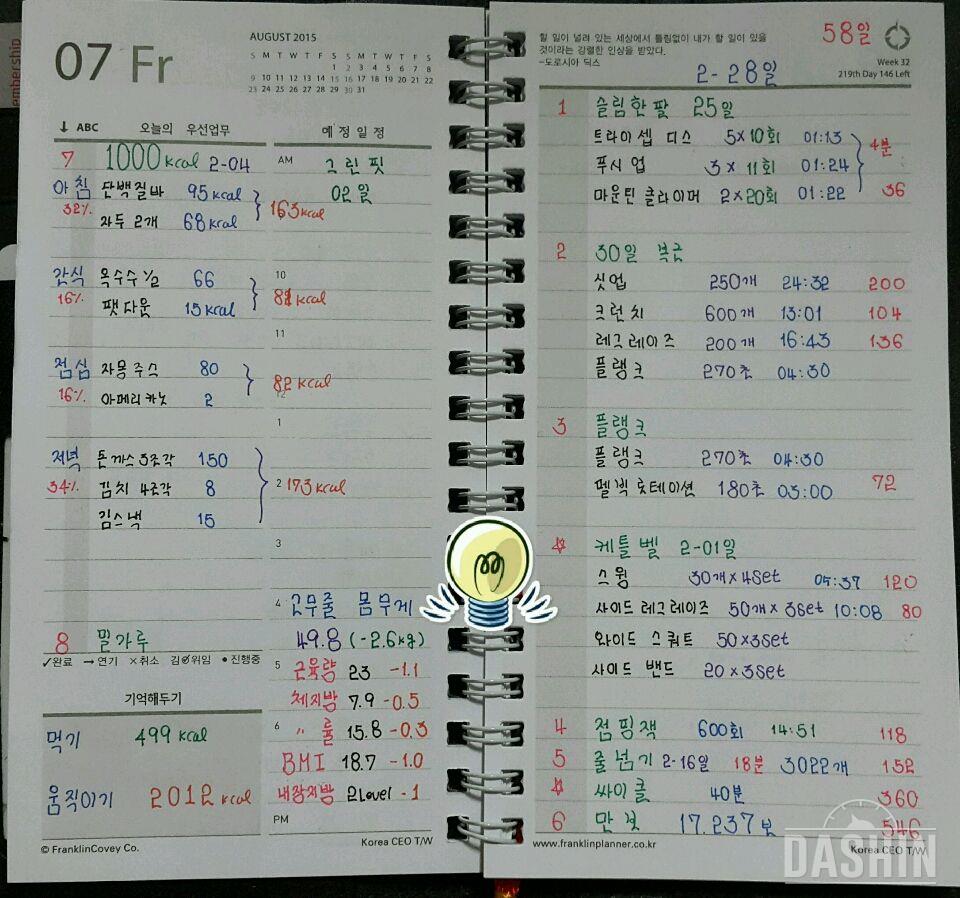 embership
07 Fr
AUGUST 2015
S M T W T F S S M T W T F S
1 2 3 4 5 6 7 8
9 10 11 12 13 14 15 16 17 18 19 20 21 22
23 24 25 26 27 28 29 30 31
↓ ABC 오늘의 우선업무
예 정 일 정
7 1000 kcal 2-04
AM 그린 핏
아침 단백질바 95 kcal
02일
32% 163 kcal
자두 2개 68 kcal
간식 옥수수 ½ 66
10
16% 팻다운 15 kcal
81 kcal
11
점심 자몽주스 80
82 kcal
12
16% 아메리카노 2
1
저녁 돈까스 3조각 150
34% 김치 4조각 8
2 173 kcal
김스낵 15
3
4 고무줄 몸무게
8 밀가루
49.8 (-2.6kg)
✓완료 →연기 ×취소 김∅위임 •진행중
5 근육량 23 -1.1
기억해두기
체지방 7.9 -0.5
6 〃 률 15.8 -0.3
먹기 499 kcal
BMI 18.7 -1.0
움직이기 2012 kcal
내장지방 2Level -1
PM
© FranklinCovey Co.
Korea CEO T/W
할 일이 널려 있는 세상에서 틀림없이 내가 할 일이 있을
것이라는 강렬한 인상을 받았다.
-도로시아 딕스
58일
2-28일
Week 32
219th Day 146 Left
1 슬림한팔 25일
트라이셉 디스 5×10회 01:13
4분
푸시업 3×11회 01:24
마운틴 클라이머 2×20회 01:22 36
2 30일 복근
싯업 250개 24:32 200
크런치 600개 13:01 104
레그레이즈 200개 16:43 136
플랭크 270초 04:30
3 플랭크
플랭크 270초 04:30
펠빅 롯테이션 180초 03:00 72
☆ 케틀벨 2-01일
스윙 30개×4set 05:37 120
사이드 레그레이즈 50개×3set 10:08 80
와이드 스쿼트 50×3set
사이드 밴드 20×3set
4 점핑잭 600회 14:51 118
5 줄넘기 2-16일 18분 3022개 152
☆ 싸이클 40분 360
6 만보 17.237보 546
www.franklinplanner.co.kr
Korea CEO T/W
DASHIN